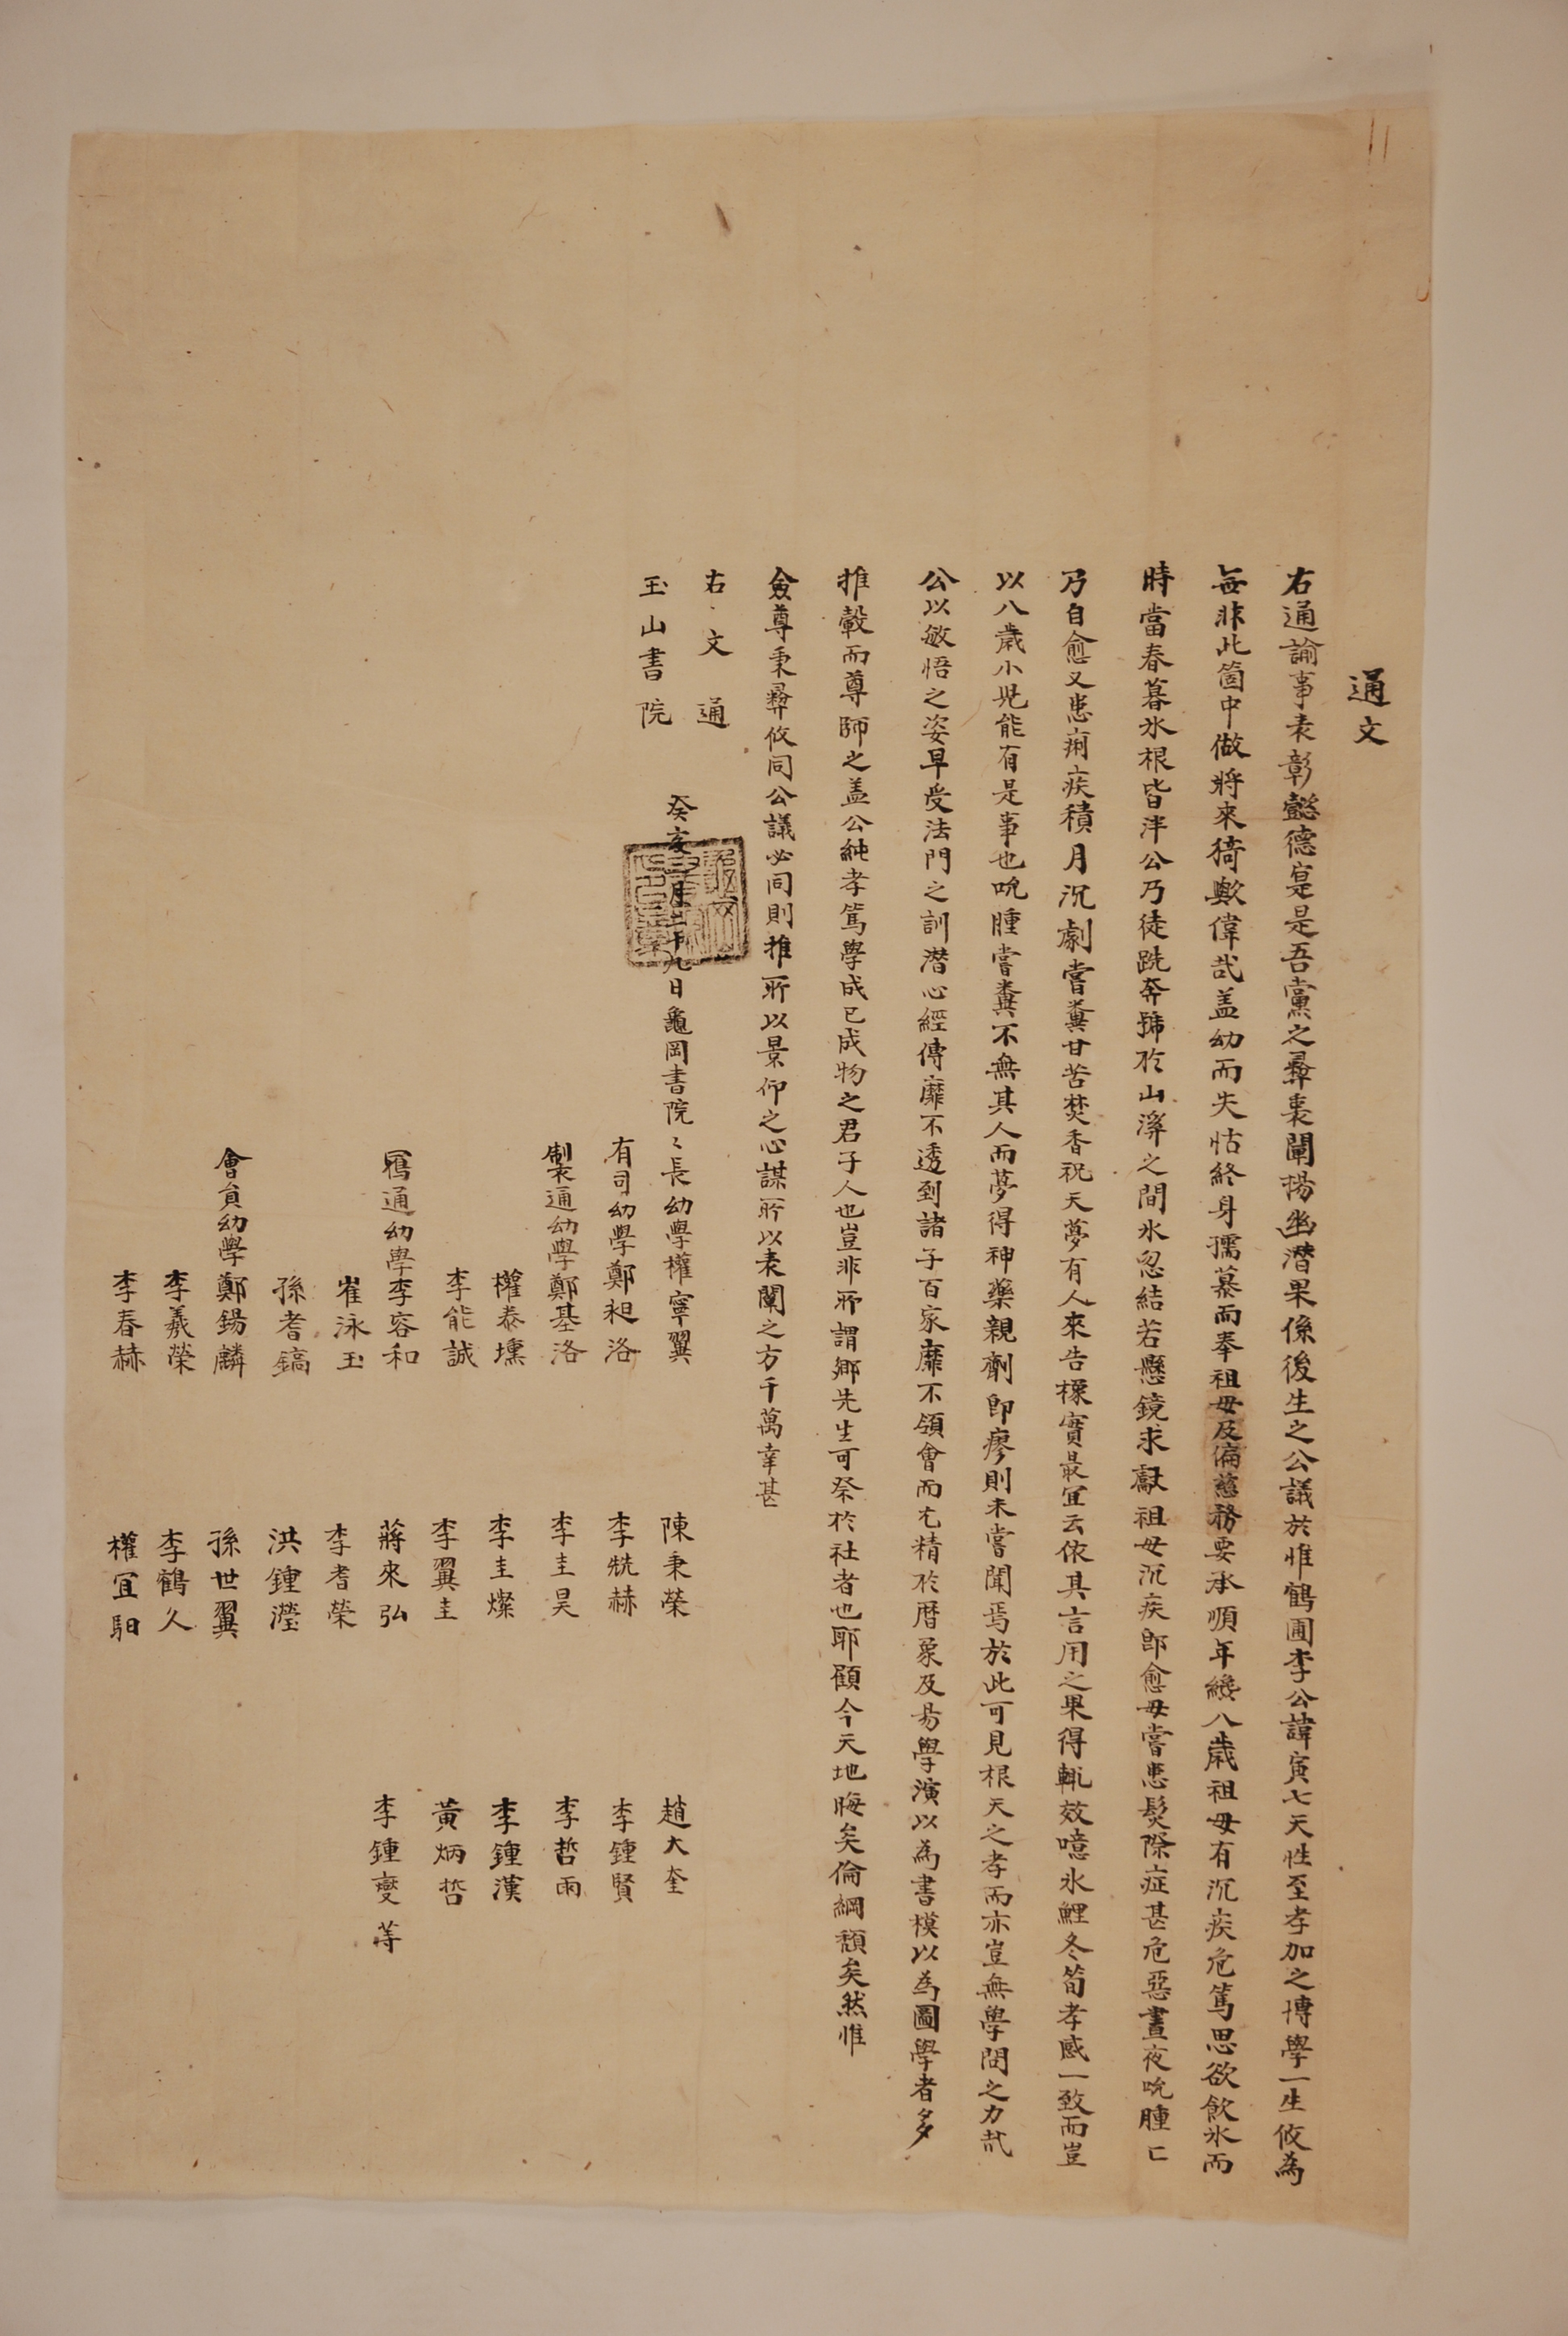 通文
右通諭事表彰懿德寔是吾黨之彛衷闡揚幽潛果係後生之公議於惟鶴圃李公諱寅七天性至孝加之博學一生攸為
每非此箇中做將來猗歟偉哉盖幼而失怙終身孺慕而奉祖母及偏慈務要承順年纔八歲祖母有沉疾危篤思欲飮氷而
時當春暮氷根皆泮公乃徒跣奔號於山澤之間氷忽結若懸鏡求獻祖母沉疾卽愈母嘗患髮際症甚危惡晝夜吮腫亡
乃自愈又患痢疾積月沉劇嘗糞甘苦焚香祝天夢有人來告檪實最宜云依其言用之果得輒效噫氷鯉冬筍孝感一致而豈
以八歲小兒能有是事也吮腫嘗糞不無其人而夢得神藥親劑卽瘳則未嘗聞焉於此可見根天之孝而亦豈無學問之力哉
公以敏悟之姿早受法門之訓潛心經傳靡不透到諸子百家靡不領會而尤精於曆象及易學演以為書模以為圖學者多
推轂而尊師之盖公純孝篤學成己成物之君子人也豈非所謂鄕先生可祭於社者也耶顧今天地晦矣倫綱頹矣然惟
僉尊秉彛攸同公議必同則推所以景仰之心謀所以表闡之方千萬幸甚
右文通
玉山書院
癸亥 月二十九日龜岡書院〻長幼學權寧翼 陳秉榮 趙大奎
有司幼學鄭昶洛 李兟赫 李鍾賢
製通幼學鄭基洛 李圭昊 李哲雨
權泰壎 李圭燦 李鍾漢
李能誠 李翼圭 黃炳哲
寫通幼學李容和 蔣來弘 李鍾燮 等
崔泳玉 李耆榮
孫耆鎬 洪鍾瀅
會員幼學鄭鍚麟 孫世翼
李羲榮 李鶴久
李春赫 權宜馹